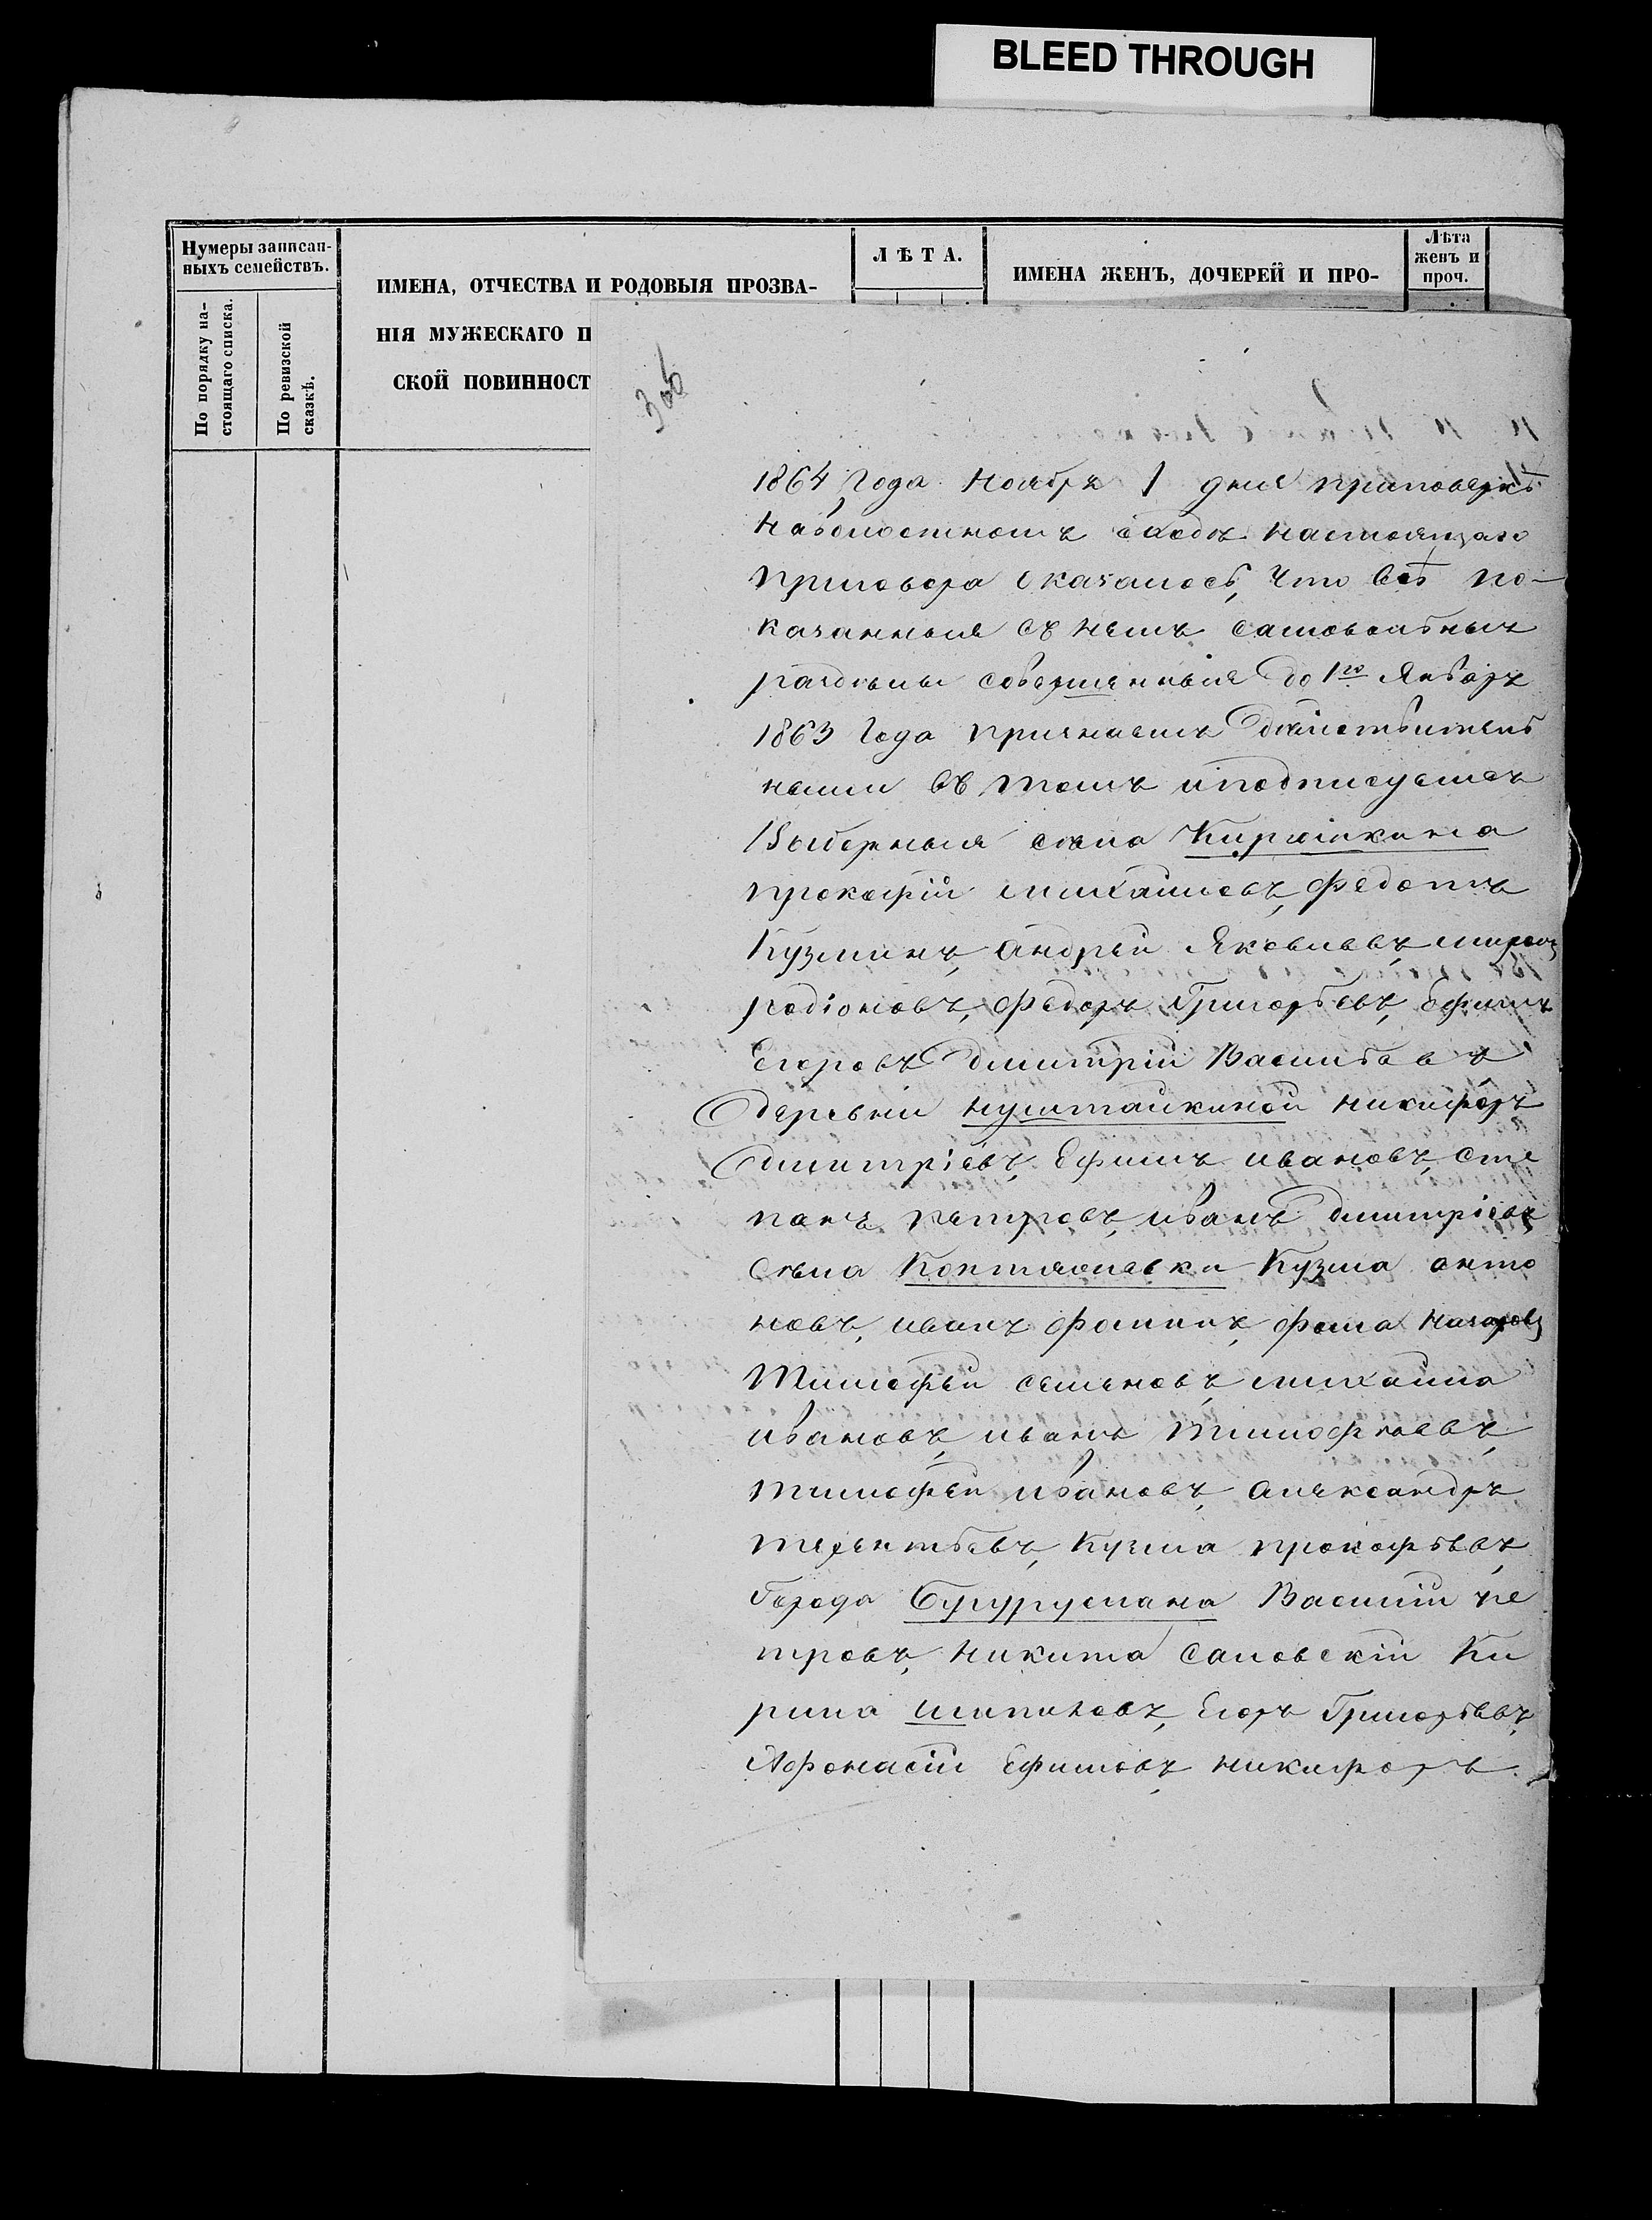 BLEED THROUGH
Нумеры записан-
ныхъ семействъ.
По порядку на-
стоящаго списка.
По ревизской
сказкѣ.
ИМЕНА, ОТЧЕСТВА И РОДОВЫЯ ПРОЗВА-
НІЯ МУЖЕСКАГО П
СКОЙ ПОВИННОСТ
ЛѢТА.
ИМЕНА ЖЕНЪ, ДОЧЕРЕЙ И ПРО-
Лѣта
женъ и
проч.
306
1864 Года Ноябрѣ 1 дня приповеркѣ
Наволостномъ сходѣ настоящаго
приговора оказалось, что всѣ по-
казанныя съ немъ самовольныѣ
раздѣлы совершенныя до 1го Январѣ
1863 Года признаемъ дѣйствитель
ными въ томъ иподписуемсѣ
Выборныя села Кирюшкина
прокофій михайловъ, Федотъ
Кузминъ, андрѣй Яковлевъ, миронъ
родіоновъ, Федоръ Григорьевъ, Ефимъ
Егоровъ дмитрій Васильевъ
деревни Нуштайкиной никифоръ
дмитріевъ, Ефимъ ивановъ, сте
панъ петровъ, иванъ дмитріевъ
Села Коптяжевки Кузма анто
новъ, иванъ фоминъ, фома назаровъ
Тимофѣй семеновъ, михайла
ивановъ, иванъ Тимофѣевъ,
тимофѣй ивановъ, александръ
терентьевъ, Кузма прокофьевъ,
Города Бугуруслана Василій пе
тровъ, никита Сановскій Ки
рила шипиловъ, Егоръ Григорьевъ,
Афонасій Ефимовъ, никифоръ